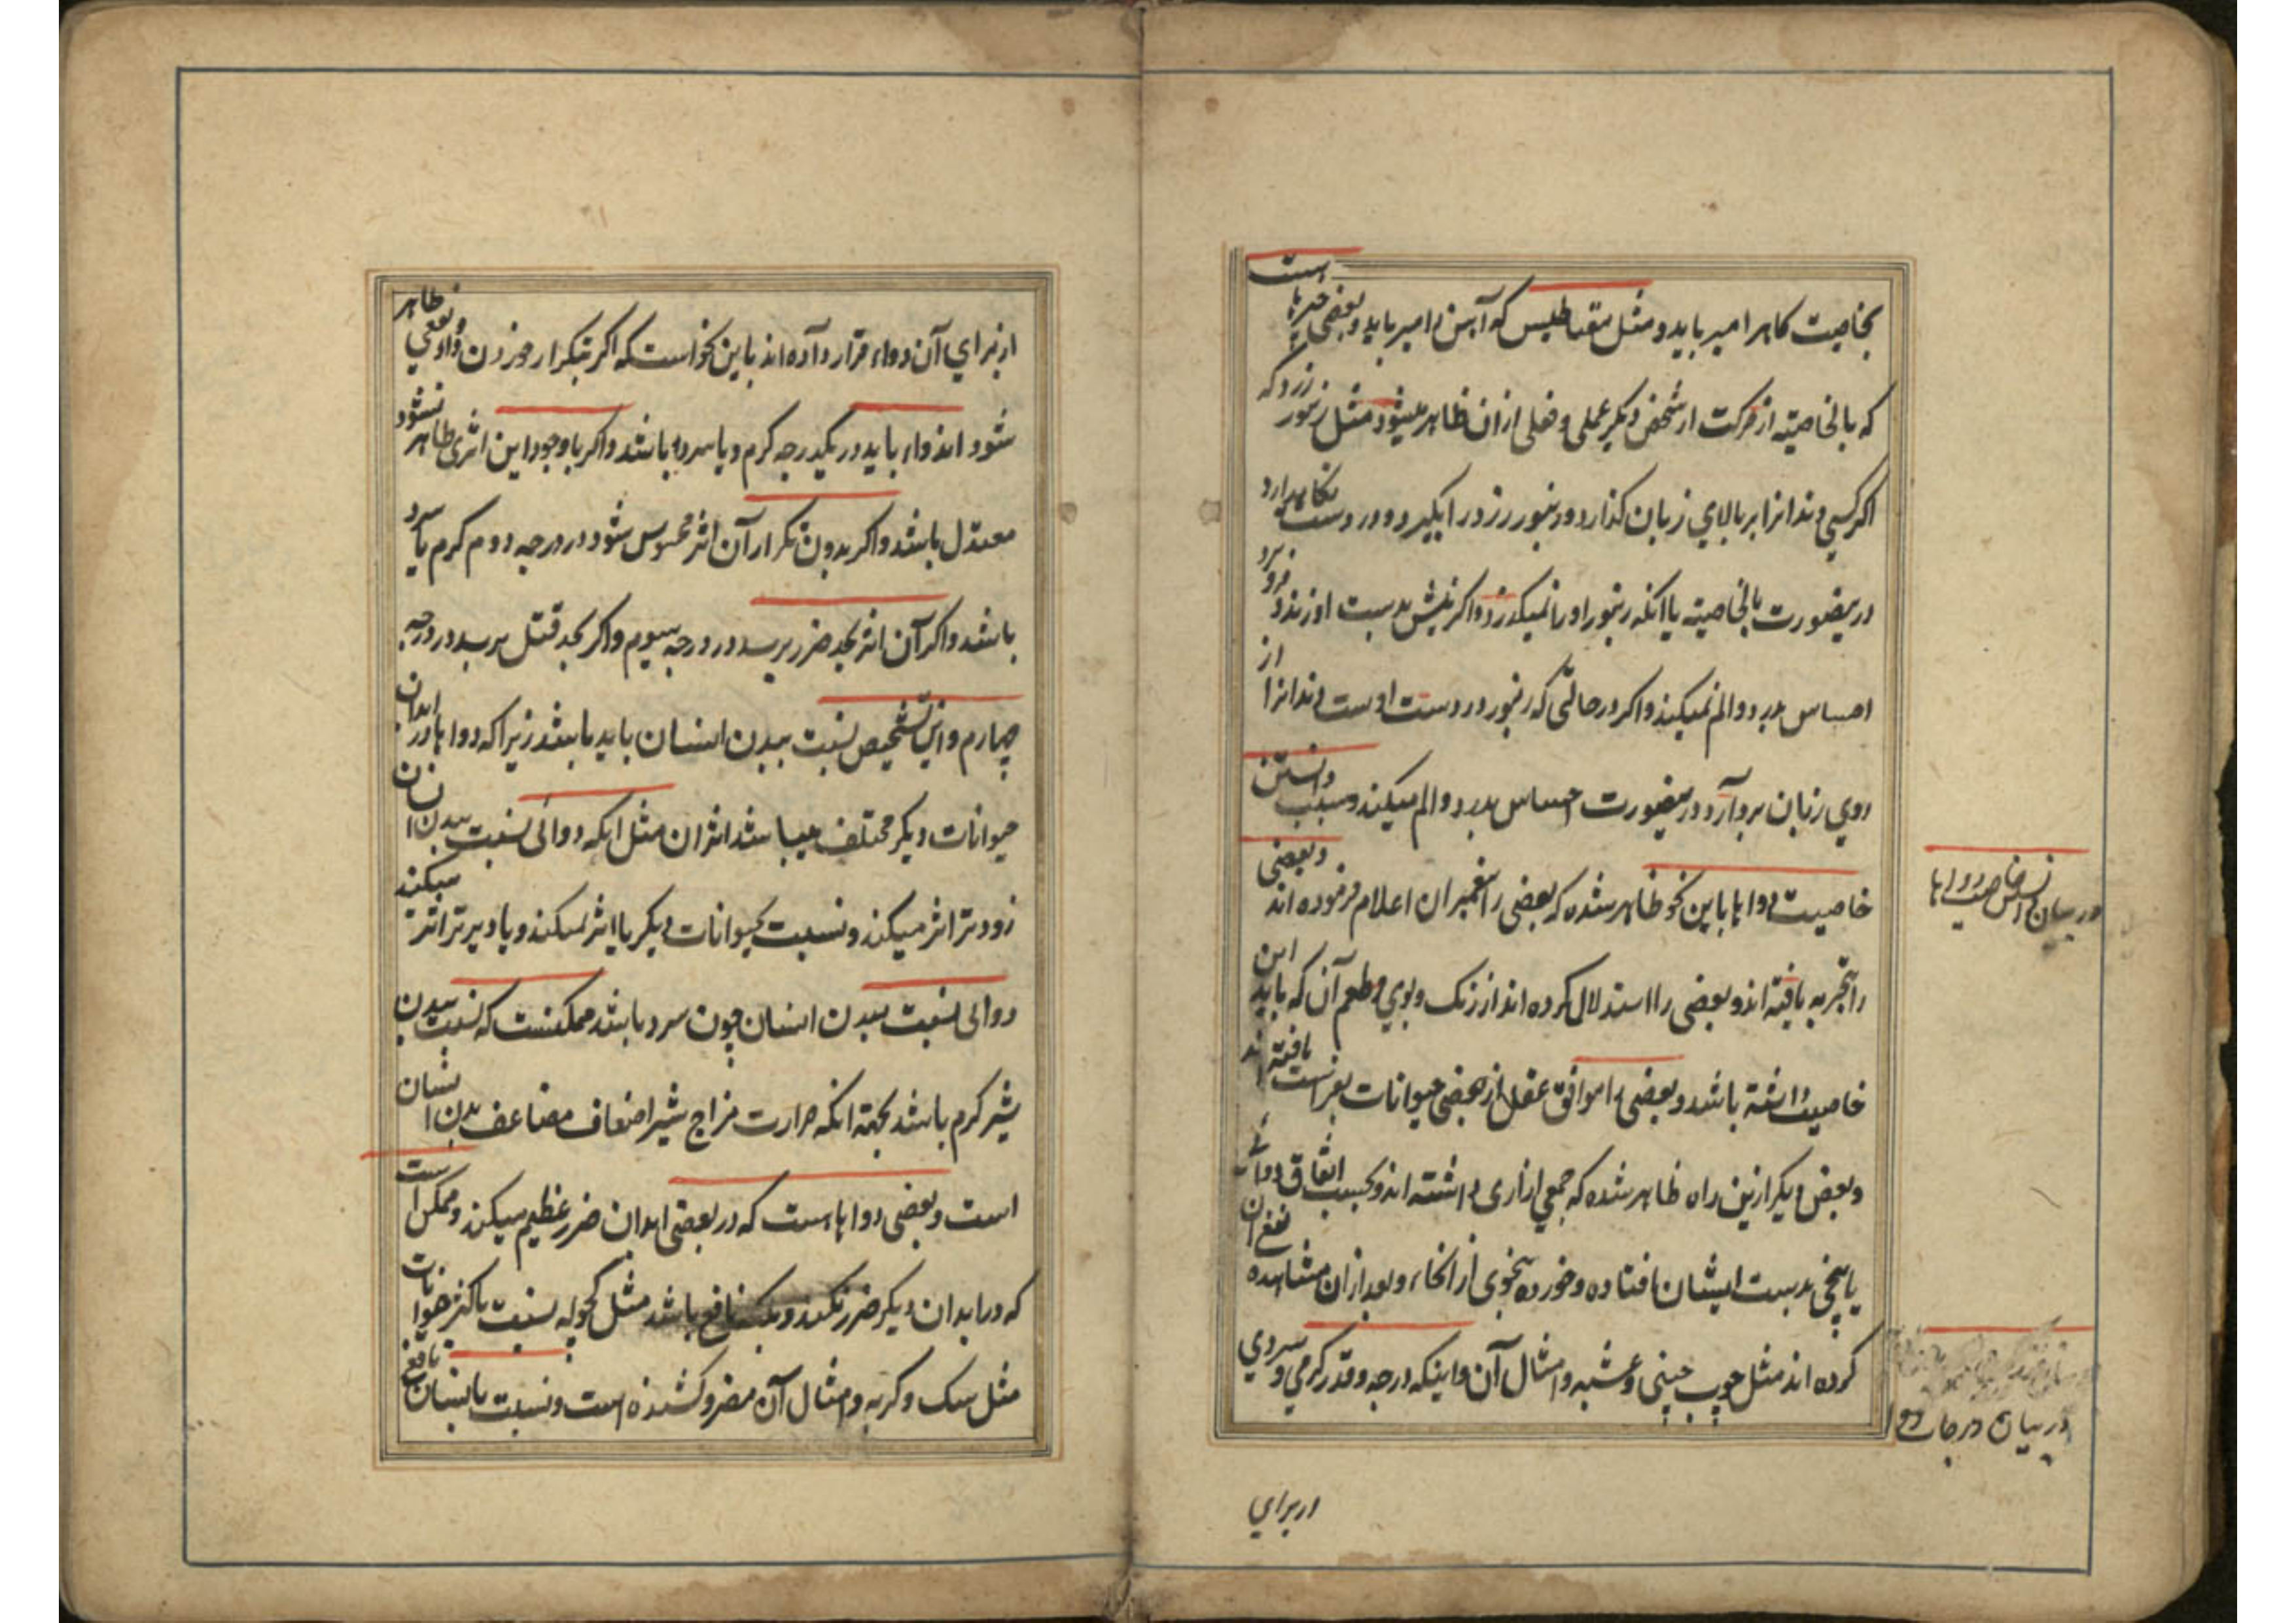 بخاصیت کاه را میرباید و مثل مقناطیس که آهن را میرباید و بعضی چیزها است
که بالخاصیته از حرکت ارشخص دیگر عملی و فعلی ازان ظاهر میشود مثل زنبور زرد که
اگر کسی دندانرا بر بالای زبان گذارد و زنبور زرد را بگیرد و در دست نگاهدارد
درینصورت بالخاصیته یا انکه زنبور او را نمیگزد و اگر نیش بدست او زند و فرو برد
احساس بدرد و الم نمیکند و اگر در حالتی که زنبور در دست اوست دندانرا از
روی زبان بردارد درینصورت احساس بدرد و الم میکند و سبب دانستن
خاصیت دواها باین نحو ظاهر شده که بعضی را پیغمبران اعلام فرموده اند و بعضی
را بتجربه یافته اند و بعضی را استدلال کرده اند از رنک و بوی و طعم آن که باید این
خاصیت داشته باشد و بعضی را موافق عقل از بعضی حیوانات بفراست یافته اند
و بعض دیگر ازین راه ظاهر شده که جمعی ازاری داشته اند و بحسب اتفاق دوائی
یا بیخی بدست ایشان افتاده و خورده بنحوی از انحاء و بعد ازان نفع ان مشاهده
کرده اند مثل چوب چینی و عشبه و امثال آن و اینکه درجه و قدر گرمی و سردی
در بیان خواص دواها
در بیان درجات دوا
از برای
از برای آن دواء قرار داده اند باین نحو است که اگر بتکرار خوردن دوائی ظاهر
شود اندواء باید در یکدرجه گرم و یا سرد باشد و اگر با وجود این اثری ظاهر نشود
معتدل باشد و اگر بدون تکرار آن اثر محسوس شود در درجه دوم گرم یا سرد
باشد و اگر آن اثر بحد ضرر برسد در درجه سیوم و اگر بحد قتل برسد در درجه
چهارم و این تشخیص نسبت ببدن انسان باید باشد زیرا که دواها در ابدان
حیوانات دیگر مختلف میباشد اثر ان مثل اینکه دوائی نسبت ببدن انسان
زودتر اثر میکند و نسبت بحیوانات دیگر یا اثر نمیکند و یا دیرتر اثر میکند
دوائی نسبت ببدن انسان چون سرد باشد ممکنست که نسبت ببدن
شیر گرم باشد بجهة انکه حرارت مزاج شیر اضعاف مضاعف بدن انسان
است و بعضی دواها ست که در بعضی ابدان ضرر عظیم میکند و ممکن است
که در ابدان دیگر ضرر نکند و بلکه نافع باشد مثل کچوله نسبت باکثر حیوانات
مثل سک و گربه و امثال آن مضر و کشنده است و نسبت بانسان نافع